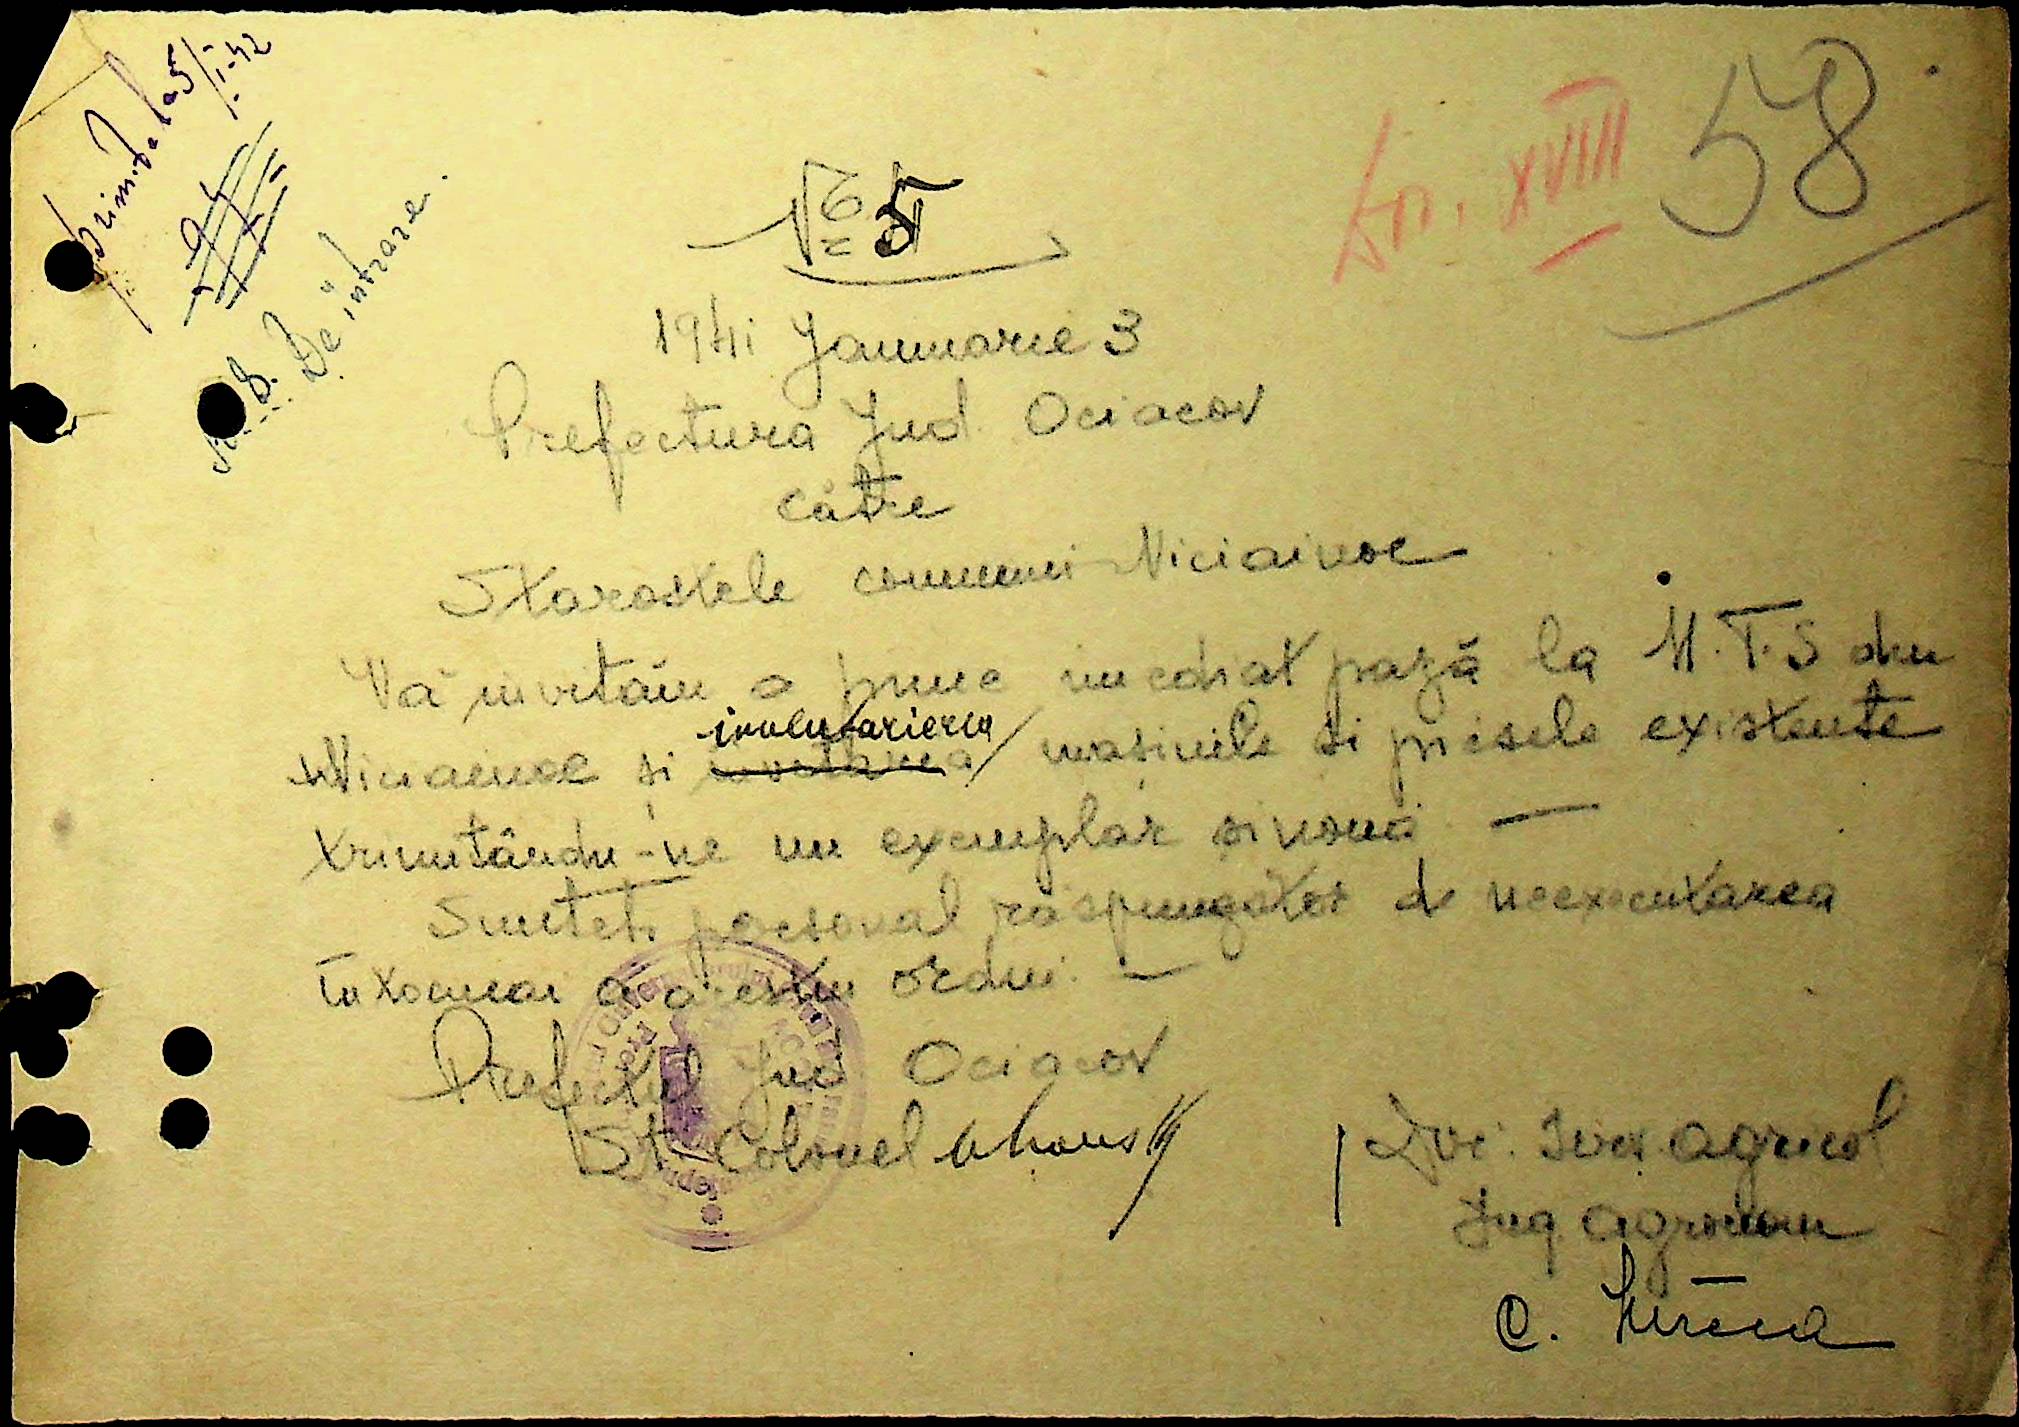 Primit la 5/I-42
No 8. De intrare.
No 5
Dos. XVIII 58
1941 Januarie 3
Prefectura Jud. Ociacov
către
Starostele comunei
Vă invităm a pune imediat pază la M.T.S din
și inventarierea mașinile si piesele existente
trimitându-ne un exemplar si nouă. —
Sunteți personal răspunzător de neexecutarea
întocmai a acestui ordin. —
Prefectul Jud. Ociacov
Lt. Colonel
Dir. Serv. agricol
Ing. agronom
C.